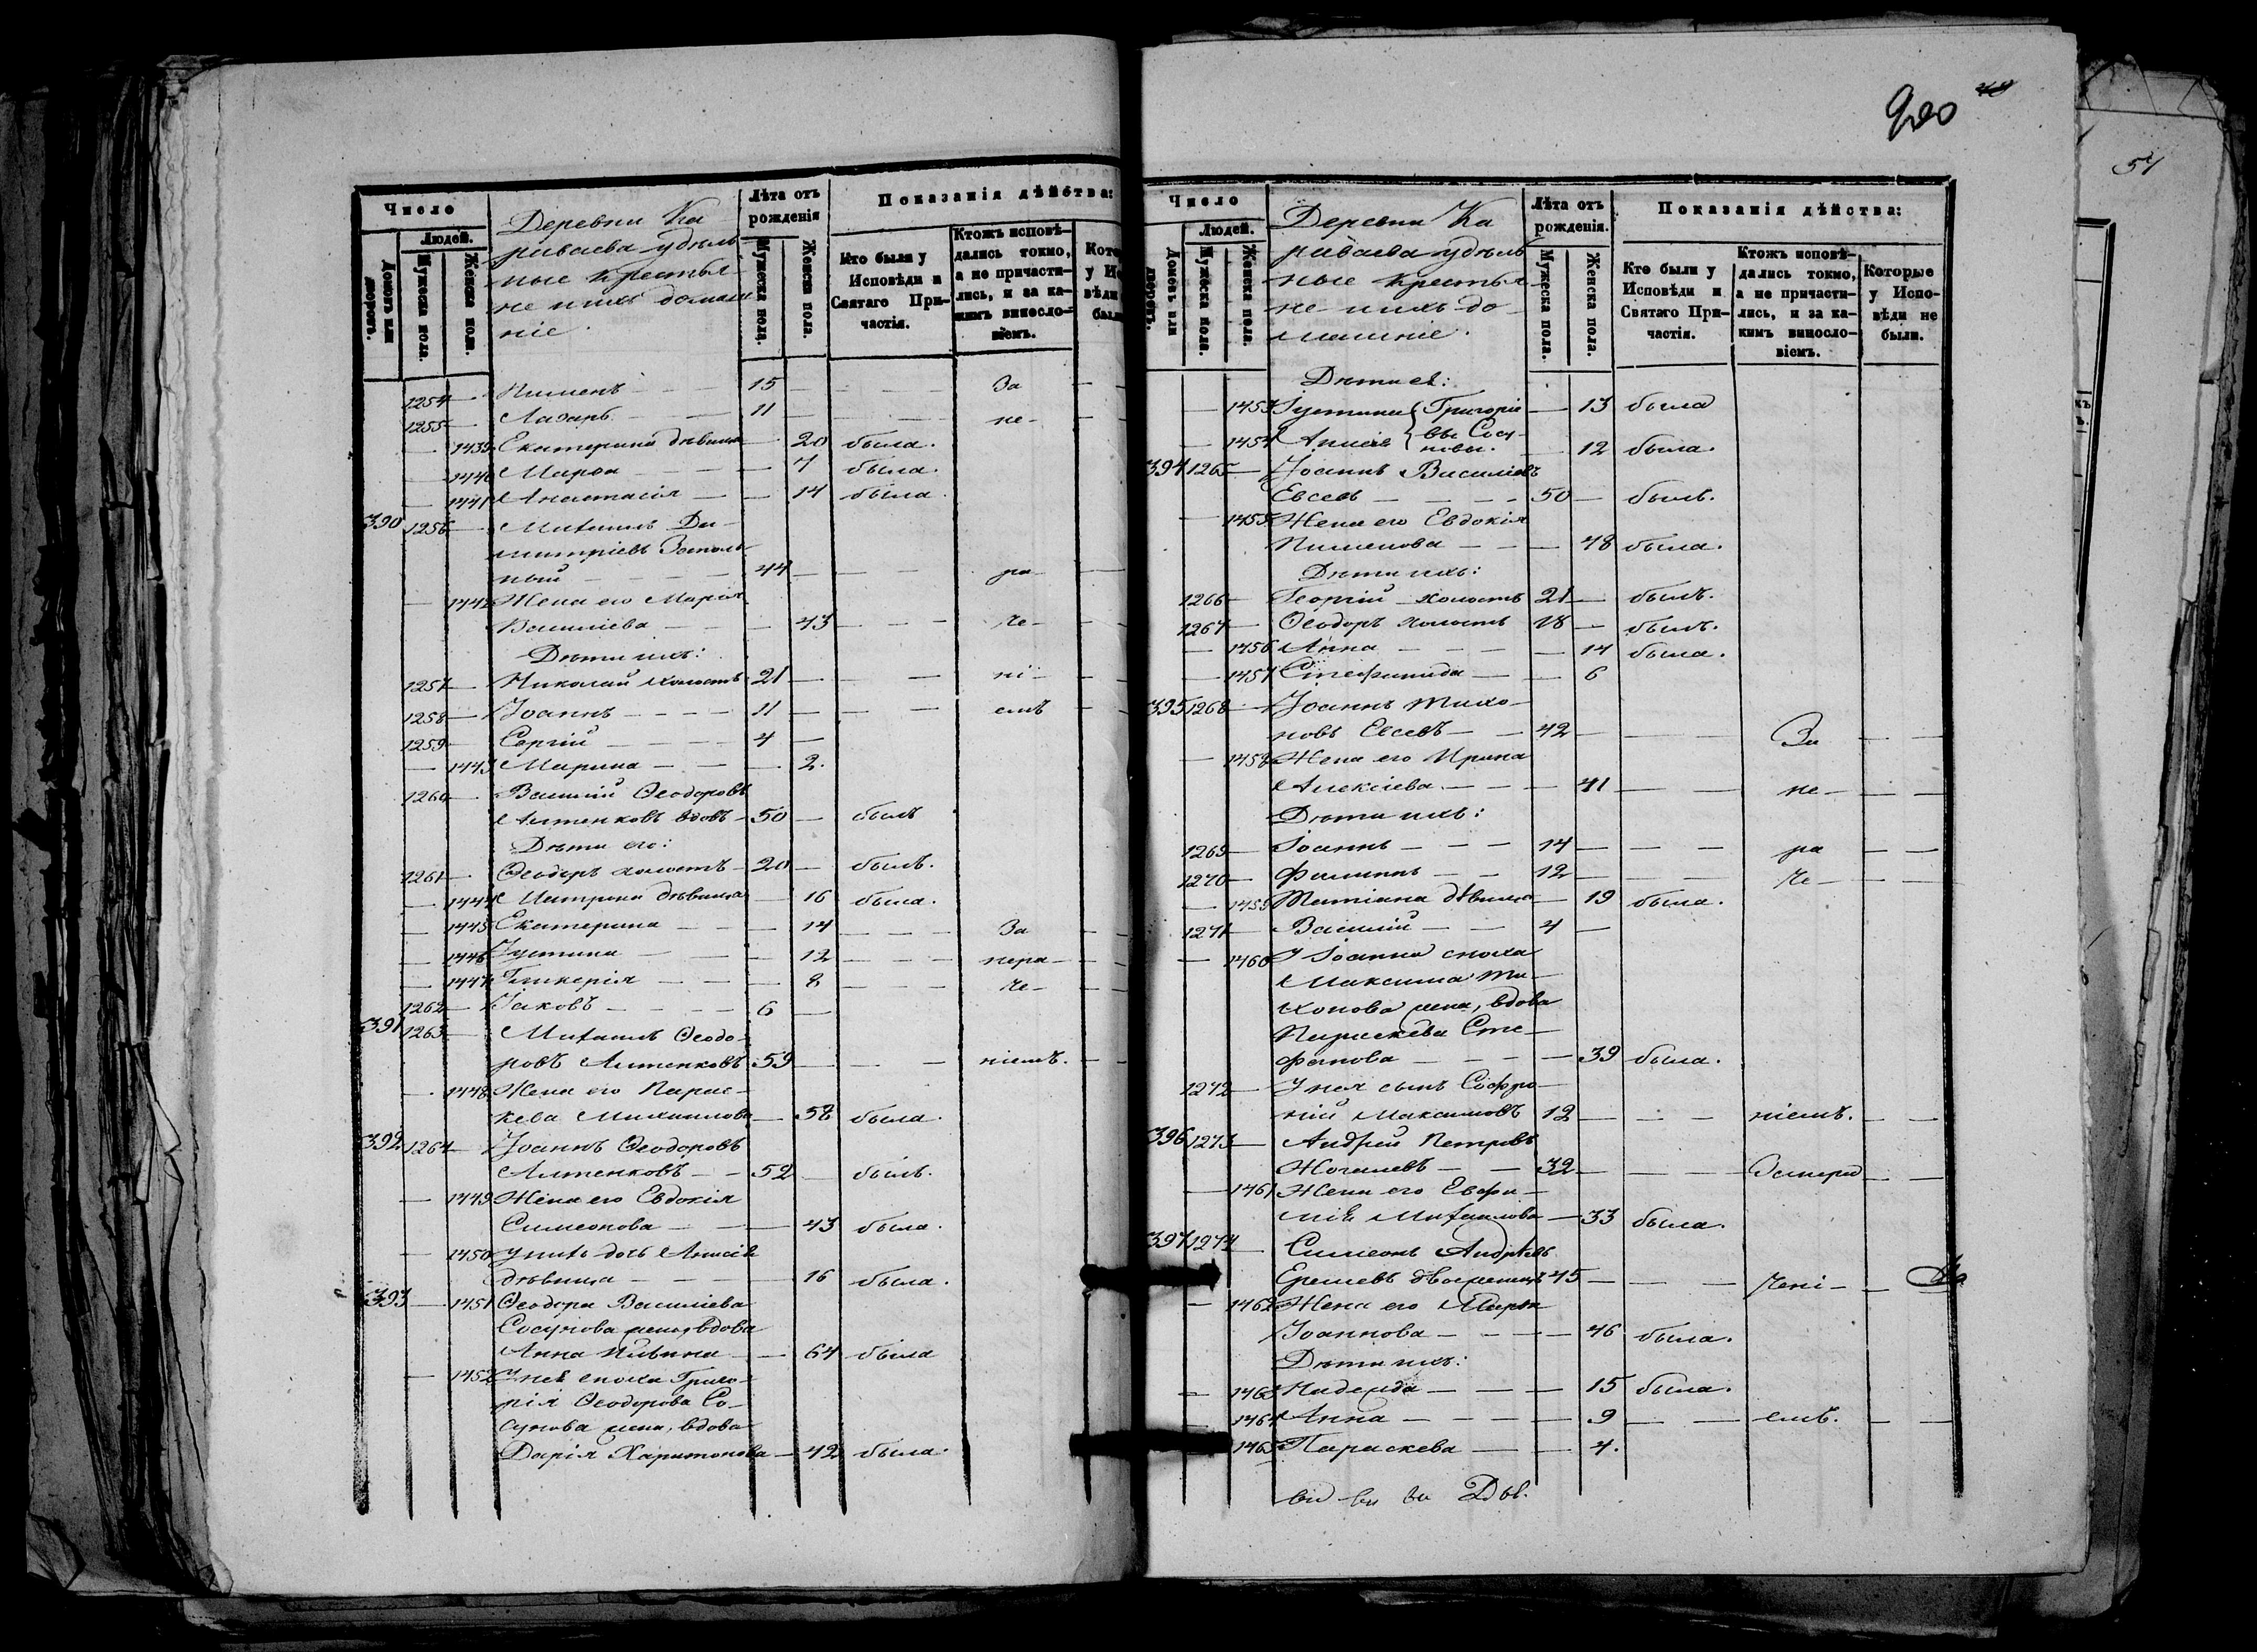 Число
Людей.
Домовъ или дворовъ.
Мужеска пола.
Женска пола.
Деревни Ка
риваева удѣль
ные крестья
не и ихъ домаш
ніе.
Лѣта отъ рожденія
Мужеска пола.
Женска пола.
Показанія дѣйства:
Кто были у Исповѣди и Святаго Причастія.
Ктожъ исповѣ-
дались токмо,
а не причасти-
лись, и за ка-
кимъ винесло-
віемъ.
1254 — Пименъ — 15 — — — За —
1255 — Лазарь — 11 — — — не —
— 1439 Екатерина дѣвица — 20 была.
— 1440 Марѳа — 7 была.
— 1441 Анастасія — 14 была.
390 1256 — Михаилъ Ди-
митріевъ
ный — 44 — — — ра —
— 1442 Жена его Марія
Василіева — 43 — — — че —
Дѣти ихъ:
1257 — Николай холостъ 21 — — — ні —
1258 — Іоаннъ — 11 — — — емъ —
1259 — Сергій — 4 —
— 1443 Марина — 2.
1260 — Василій Ѳеодоровъ
Алтенковъ вдовъ — 50 — былъ
Дѣти его:
1261 — Ѳеодоръ холостъ — 20 — былъ.
— 1444 Матрона дѣвица — 16 была.
— 1445 Екатерина — 14 — — — За —
— 1446 Іустина — 12 — — — нера —
— 1447 Гликерія — 8 — — — че —
1262 — Іаковъ — 6 —
391 1263 — Михаилъ Ѳеодо-
ровъ Алтенковъ 59 — — — ніемъ. —
— 1448 Жена его Парас-
кева Михаилова — 58 была.
392 1264 — Іоаннъ Ѳеодоровъ
Алтенковъ — 52 — былъ.
— 1449 Жена его Евдокія
Симеонова — 43 была.
— 1450 У нихъ дочь Анисія
дѣвица — 16 была.
393 — 1451 Ѳеодора Василіева
Сосунова жена, вдова
Анна — 64 была
— 1452 У неѣ сноха Григо-
рія Ѳеодорова Со-
сунова жена, вдова
Дарія Харитонова — 42 была.
54
Число
Людей.
Домовъ или дворовъ.
Мужеска пола.
Женска пола.
Деревни Ка
риваева удѣль
ные крестья
не и ихъ до-
машніе.
Лѣта отъ рожденія.
Мужеска пола.
Женска пола.
Показанія дѣйства:
Кто были у Исповѣди и Святаго Причастія.
Ктожъ исповѣ-
дались токмо,
а не причасти-
лись, и за ка-
кимъ винесло-
віемъ.
Которые у Исповѣди не были.
Дѣти еѣ:
— 1453 Іустина { Григоріе — 13 была
— 1454 Анисія { вы Сосу-
новы. 12 была.
394 1265 — Іоаннъ Василіевъ
Евсевъ — 50 — былъ.
— 1455 Жена его Евдокія
Пименова — 48 была.
Дѣти ихъ:
1266 — Георгій холостъ 21 — былъ.
1267 — Ѳеодоръ холостъ 18 — былъ.
— 1456 Анна — 14 была.
— 1457 Стефанида — 6
395 1268 — Іоаннъ Тихо-
новъ Евсевъ — 42 — — — За — —
— 1458 Жена его Ирина
Алексіева — 41 — — не — —
Дѣти ихъ:
1269 — Іоаннъ — 14 — — — ра — —
1270 — Филиппъ — 12 — — — че — —
— 1459 Татіана дѣвица — 19 была.
1271 — Василій — 4 —
— 1460 У Іоанна сноха
Максима Ти-
хонова жена, вдова
Параскева Сте-
фанова — 39 была.
1272 — У нея сынъ Софро-
ній Максимовъ 12 — — — ніемъ. — —
396 1273 — Андрей Петровъ
32 — — —
— 1461 Жена его Евфи-
міѣ Михаилова — 33 была.
397 1274 — Симеонъ Андреевъ
Ершевъ двоеженецъ 45 — — — чені — —
— 1462 Жена его Марѳа
Іоаннова — 46 была.
Дѣти ихъ:
— 1463 Надежда — 15 была.
— 1464 Анна — 9 — — емъ. — —
— 1465 Параскева — 4.